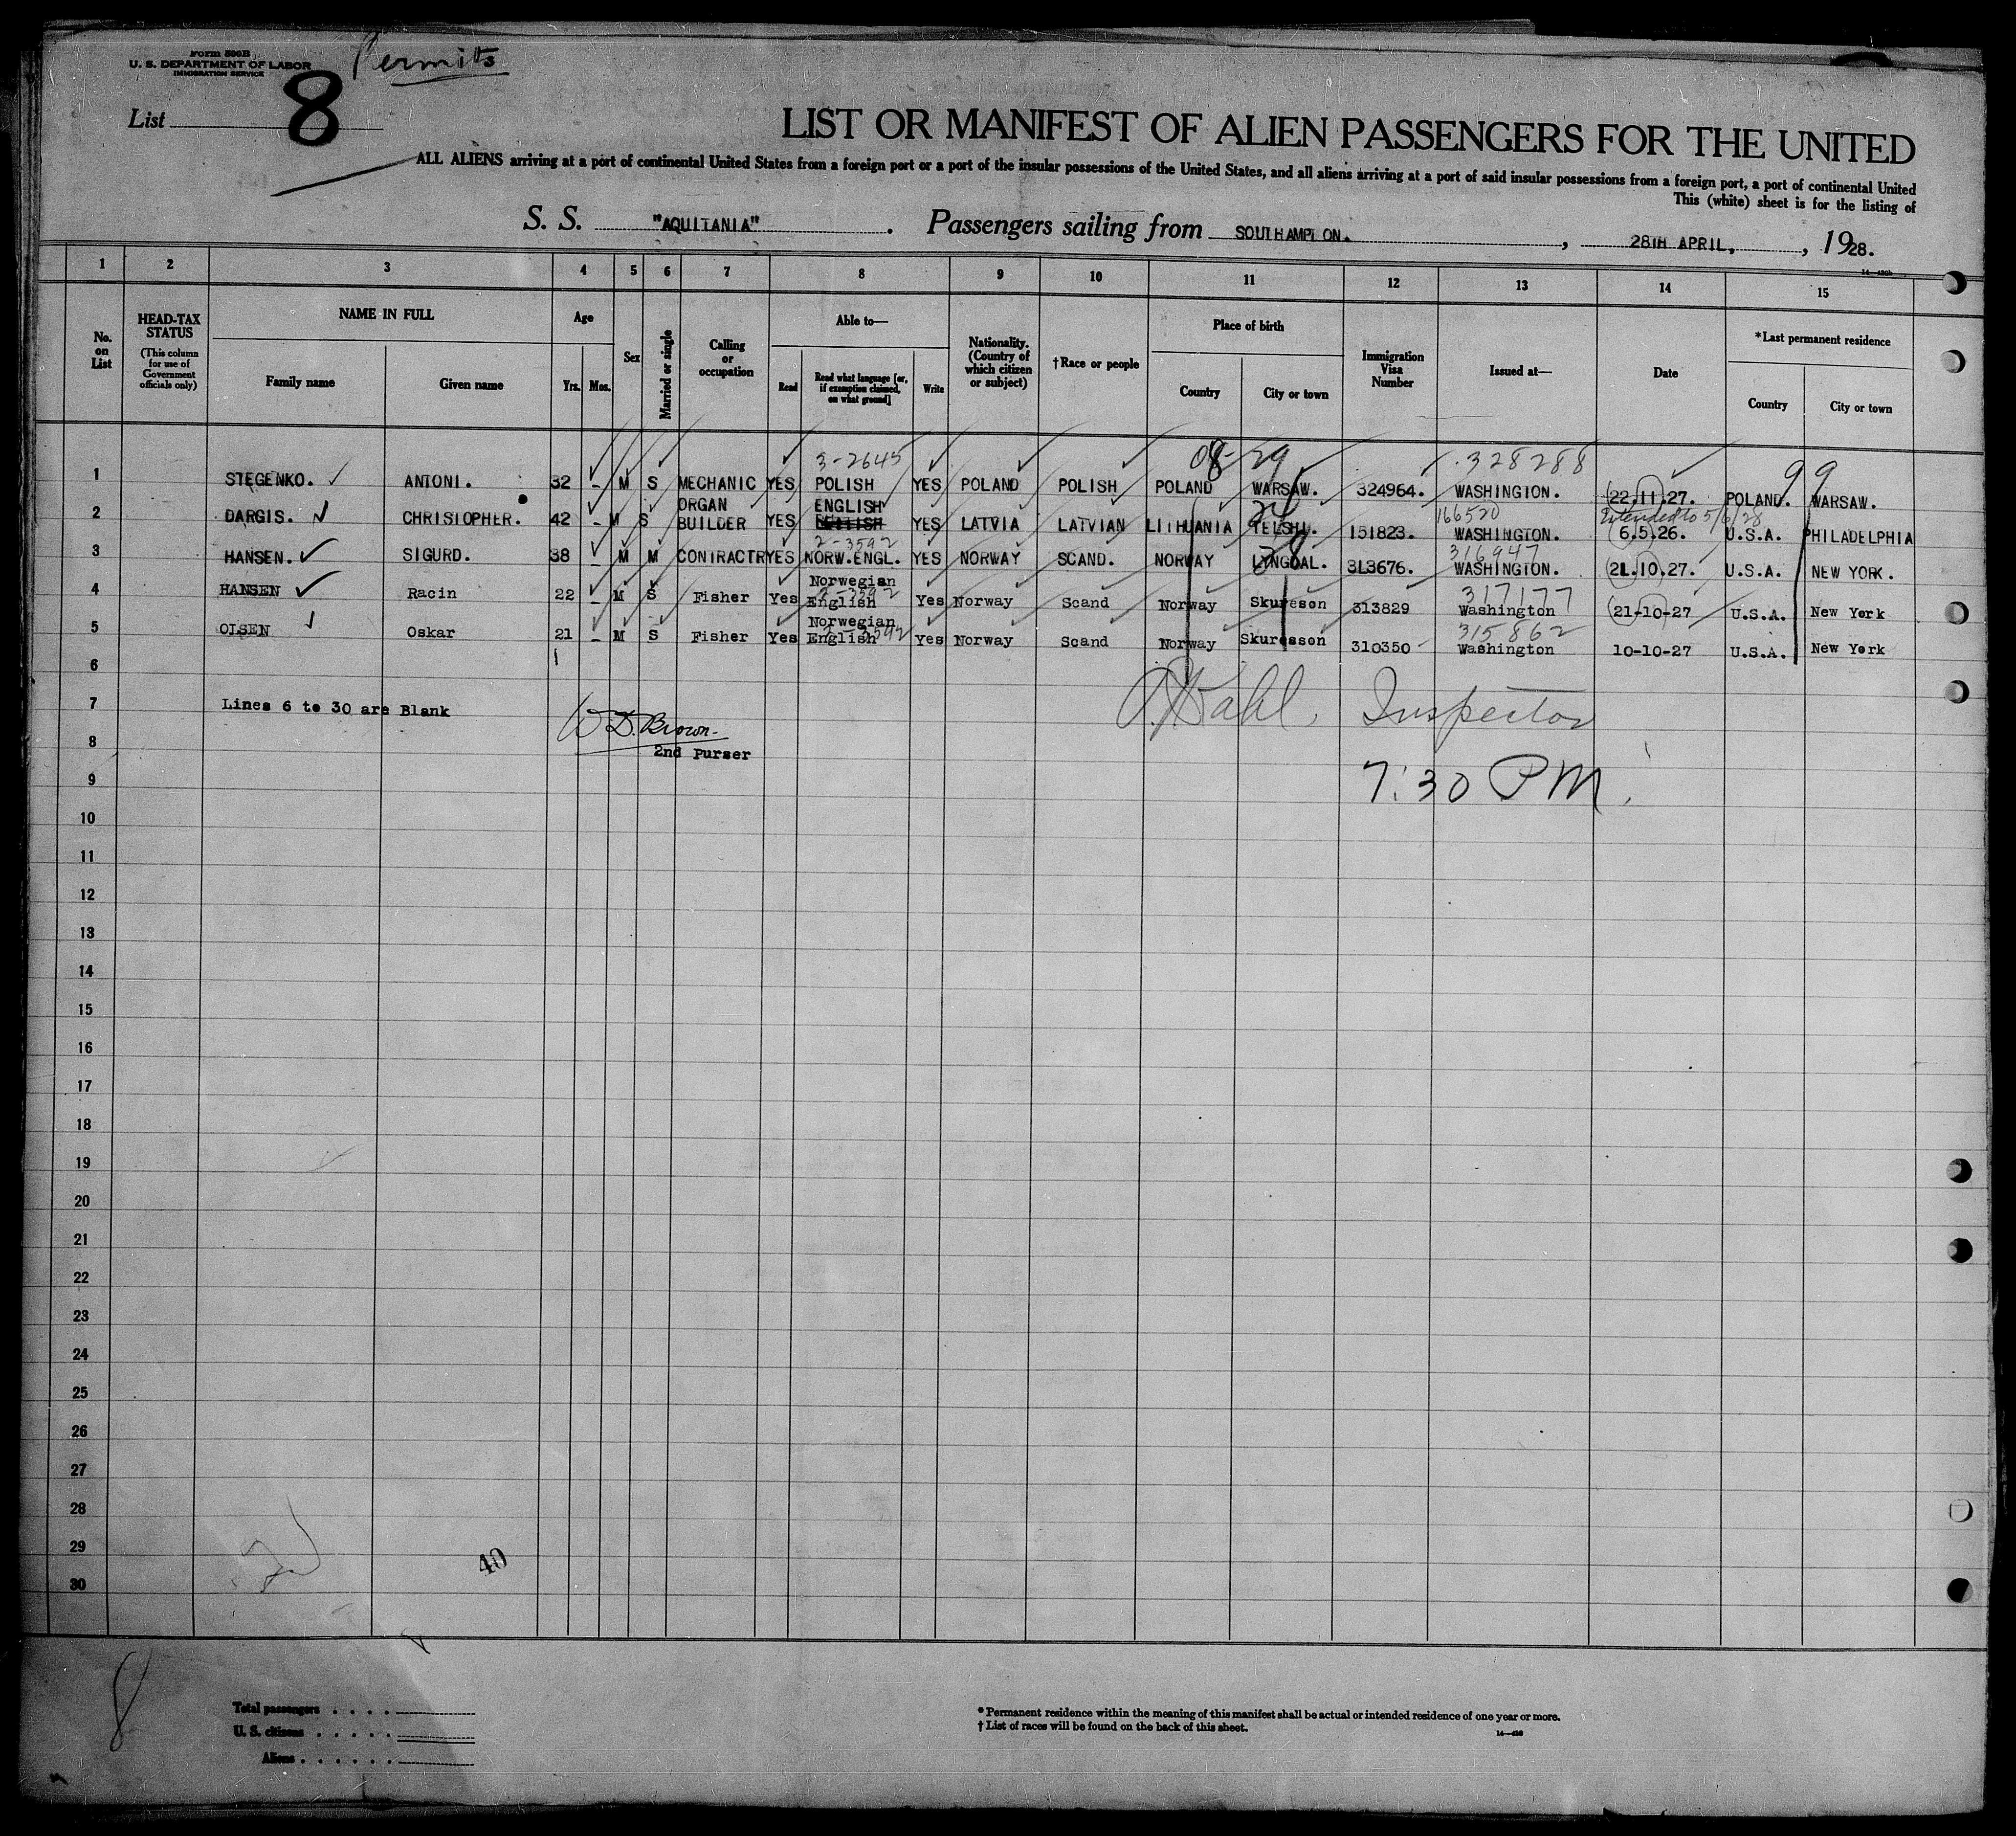 Form 500B
U. S. DEPARTMENT OF LABOR
IMMIGRATION SERVICE
Permits
List 8
LIST OR MANIFEST OF ALIEN PASSENGERS FOR THE UNITED
ALL ALIENS arriving at a port of continental United States from a foreign port or a port of the insular possessions of the United States, and all aliens arriving at a port of said insular possessions from a foreign port, a port of continental United
This (white) sheet is for the listing of
S. S. "AQUITANIA". Passengers sailing from SOUTHAMPTON., 28TH APRIL., 1928.
1 2 3 4 5 6 7 8 9 10 11 12 13 14 15
No. on List
HEAD-TAX STATUS
(This column for use of Government officials only)
NAME IN FULL
Family name Given name
Age
Yrs. Mos.
Sex
Married or single
Calling or occupation
Able to—
Read Read what language [or, if exemption claimed, on what ground] Write
Nationality. (Country of which citizen or subject)
†Race or people
Place of birth
Country City or town
Immigration Visa Number
Issued at—
Date
*Last permanent residence
Country City or town
3-2645 08 29 328288 99
1 STEGENKO. ANTONI. 32 - M S MECHANIC YES POLISH YES POLAND POLISH POLAND WARSAW. 324964. WASHINGTON. 22.11.27. POLAND. WARSAW.
24 166520 Extended to 5/6/28
2 DARGIS. CHRISTOPHER. 42 - M S ORGAN BUILDER YES ENGLISH YES LATVIA LATVIAN LITHUANIA TELSHI. 151823. WASHINGTON. 6.5.26. U.S.A. PHILADELPHIA
2-3592 316947
3 HANSEN. SIGURD. 38 - M M CONTRACTR YES NORW.ENGL. YES NORWAY SCAND. NORWAY LYNGDAL. 313676. WASHINGTON. 21.10.27. U.S.A. NEW YORK.
2-3592 317177
4 HANSEN Racin 22 - M S Fisher Yes Norwegian English Yes Norway Scand Norway Skureson 313829 Washington 21-10-27 U.S.A. New York
3592 315862
5 OLSEN Oskar 21 - M S Fisher Yes Norwegian English Yes Norway Scand Norway Skuresson 310350 Washington 10-10-27 U.S.A. New York
6
7 Lines 6 to 30 are Blank
W D. Brown
2nd Purser
Dahl, Inspector
8
9 7:30 PM.
10
11
12
13
14
15
16
17
18
19
20
21
22
23
24
25
26
27
28
29
40
30
8
Total passengers
U. S. citizens
Aliens
* Permanent residence within the meaning of this manifest shall be actual or intended residence of one year or more.
† List of races will be found on the back of this sheet.